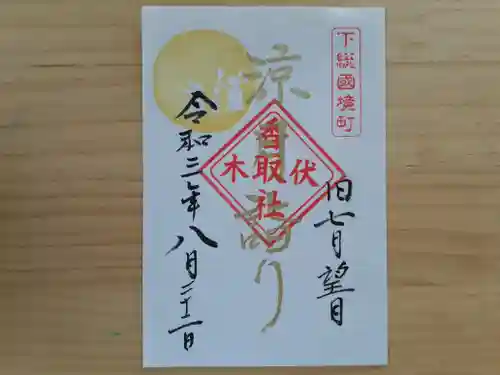 下総國境町
旧七月望日
涼月詣り
香取社
伏木
令和三年八月二十二日